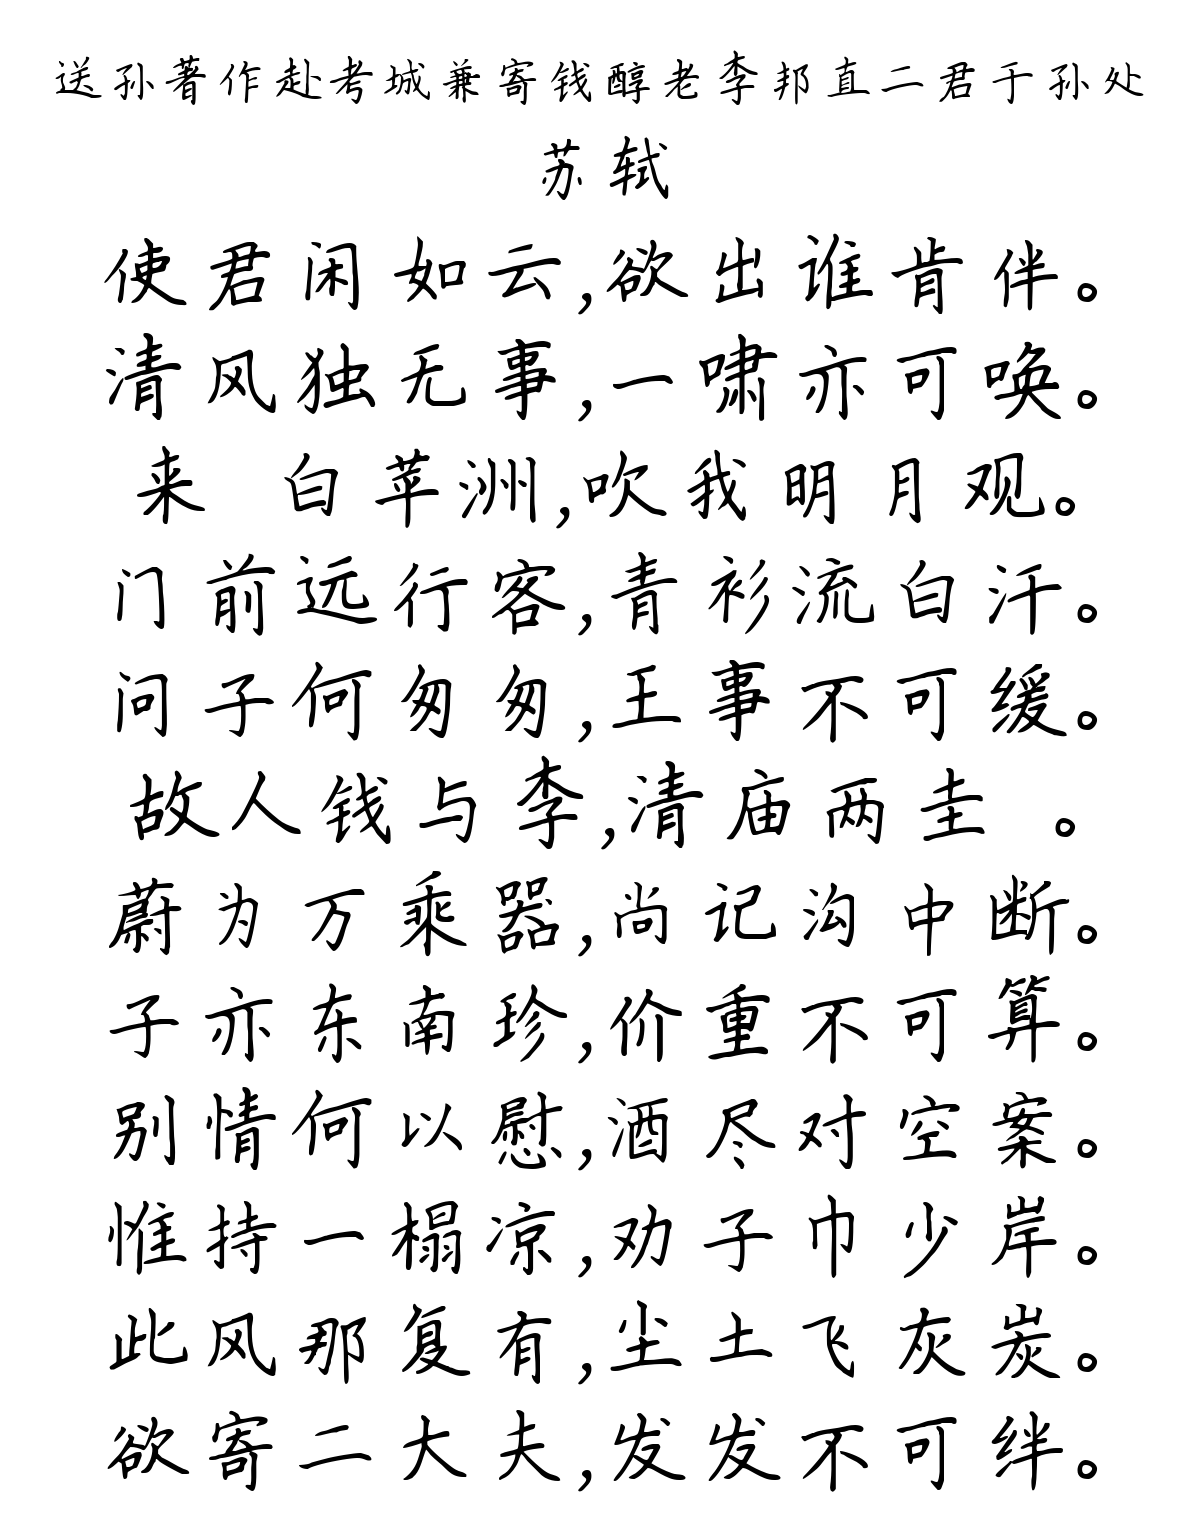 送孙著作赴考城兼寄钱醇老李邦直二君于孙处
苏轼
使君闲如云,欲出谁肯伴。
清风独无事,一啸亦可唤。
来 白苹洲,吹我明月观。
门前远行客,青衫流白汗。
问子何匆匆,王事不可缓。
故人钱与李,清庙两圭 。
蔚为万乘器,尚记沟中断。
子亦东南珍,价重不可算。
别情何以慰,酒尽对空案。
惟持一榻凉,劝子巾少岸。
此风那复有,尘土飞灰炭。
欲寄二大夫,发发不可绊。